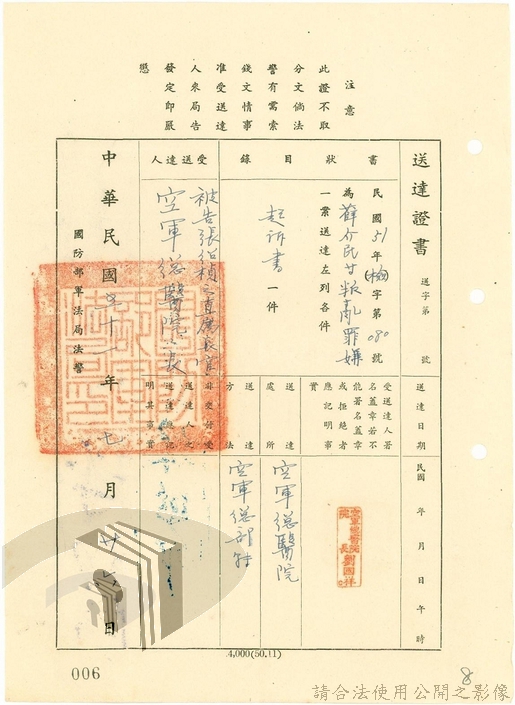 注意
此證不取
分文倘法
警有需索
錢文情事
准受送達
人來局告
發定即嚴
懲
送達證書
送字第 號
送達日期
民國 年 月 日 午 時
書狀目錄
民國51年(檢)字第080號
為薛介民廿叛亂罪嫌
一案送達左列各件
起訴書一件
受送達人署
名蓋章若不
能署名蓋章
或拒絕者
應記明事
實
空軍總醫院
院長劉國祥
送達處所
空軍總醫院
送達方法
空軍總部軒
受送達人
被告張從禎之直屬長官
空軍總醫院院長
非受付受
送達人之
送達應記
明其事實
中華民國五十一年七月廿六日
國防部軍法局法警
4,000(50.11)
006
8
請合法使用公開之影像